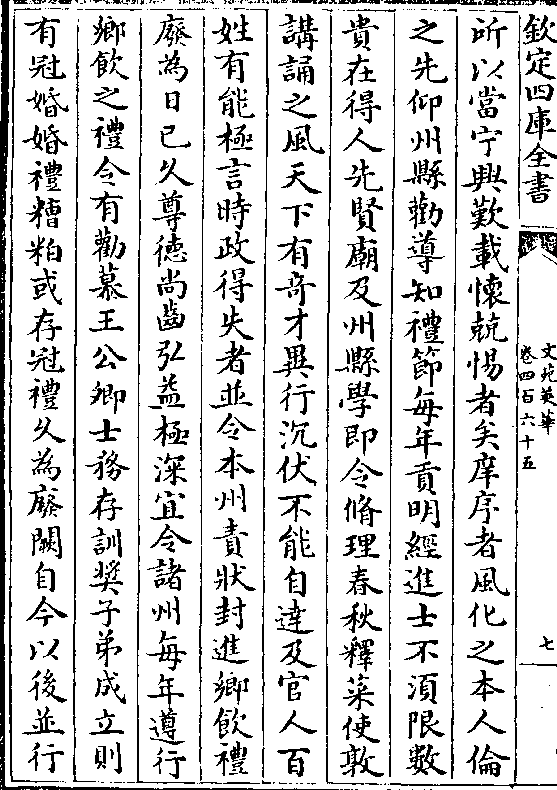 欽定四庫全書
文苑英華
卷四百六十五
七
所以當宁興歎載懷兢惕者矣庠序者風化之本人倫
之先仰州縣勸導知禮節每年貢明經進士不湏限數
貴在得人先賢廟及州縣學即令脩理春秋釋菜使敦
講誦之風天下有竒才異行沉伏不能自達及官人百
姓有能極言時政得失者並令本州責狀封進鄉飲禮
廢為日已久尊徳尚齒弘益極深宜令諸州每年遵行
鄉飲之禮令有勸慕王公卿士務存訓奬子弟成立則
有冠婚婚禮糟粕或存冠禮久為廢闕自今以後並行